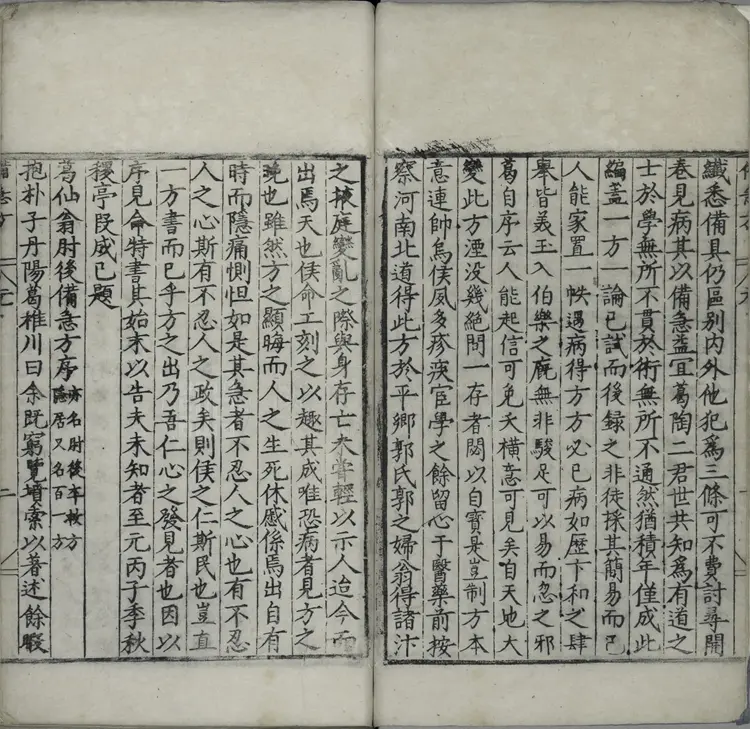 纖悉備具仍區别內外他犯爲三條可不費討尋開
卷見病其以備急益宜葛陶二君世共知爲有道之
士於學無所不貫於術無所不通然猶積年僅成此
編盖一方一論已試而後録之非徒採其簡易而已
人能家置一帙遇病得方方必已病如歷卞和之肆
舉皆美玉入伯樂之廐無非駿足可以易而忽之邪
葛自序云人能起信可免夭橫意可見矣自天地大
變此方湮没幾絶間一存者閟以自寳是豈制方本
意連帥烏侯夙多疹疾宦學之餘留心于醫藥前按
察河南北道得此方於平鄉郭氏郭之婦翁得諸汴
之掖庭變亂之際與身存亡未甞輕以示人迨今而
出焉天也侯命工刻之以趣其成唯恐病者見方之
晚也雖然方之顯晦而人之生死休慼係焉出自有
時而隱痛惻怛如是其急者不忍人之心也有不忍
人之心斯有不忍人之政矣則侯之仁斯民也豈直
一方書而已乎方之出乃吾仁心之發見者也因以
序見命特書其始末以告夫未知者至元丙子季秋
稷亭段成已題
葛仙翁肘後備急方序 亦名肘後卒救方
隱居又名百一方
抱朴子丹陽葛稚川曰余旣窮覽墳索以著述餘暇
備急方 八序 二